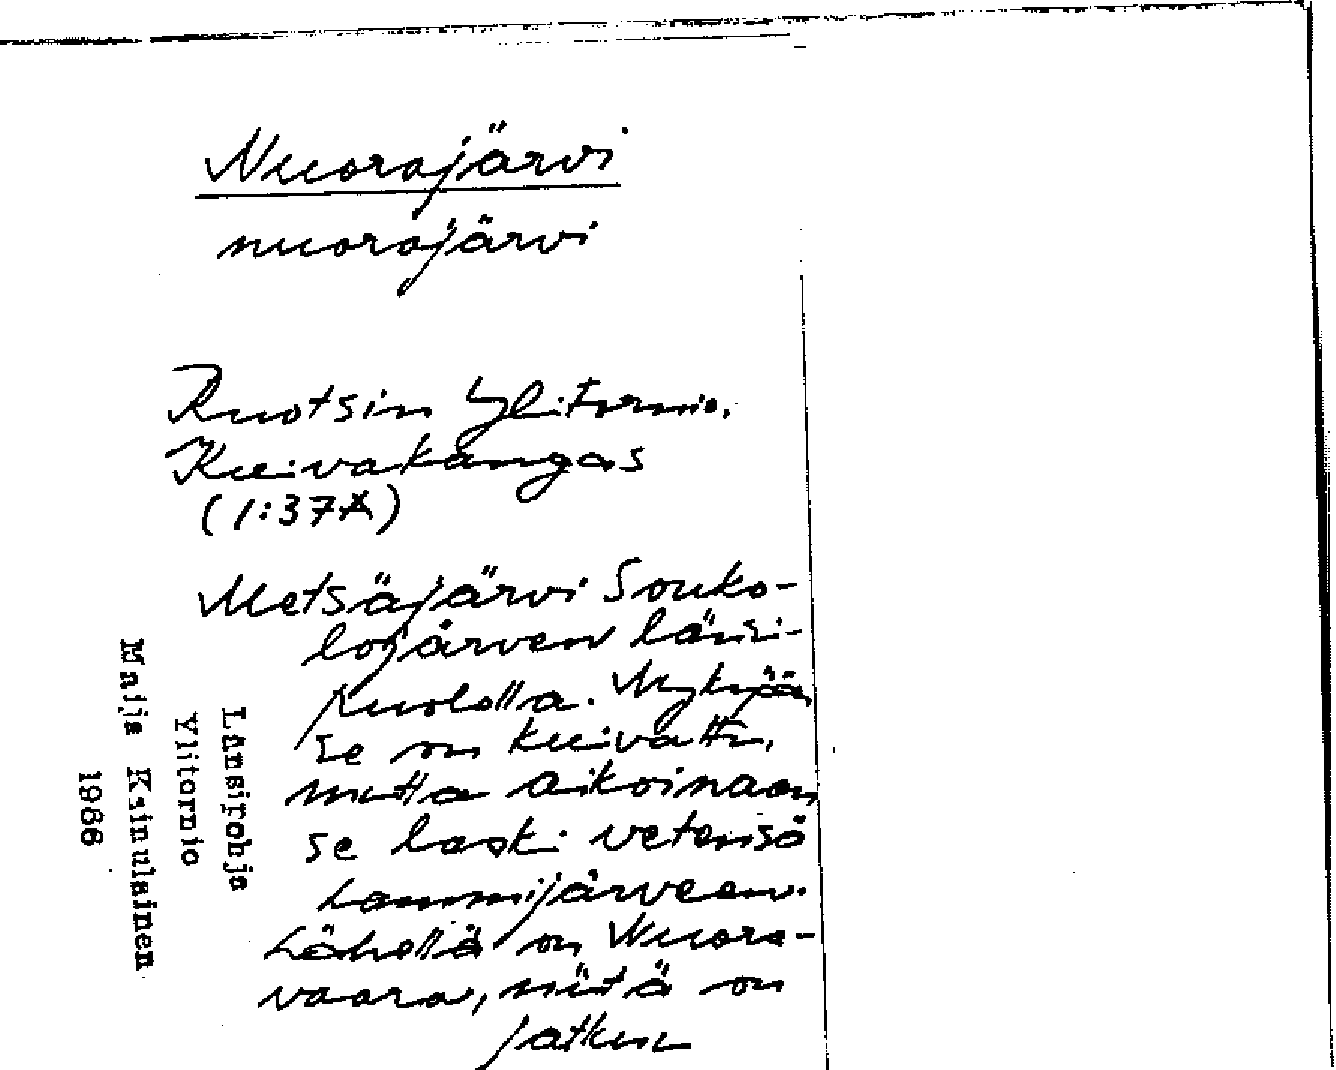 Nuorajärvi
nuorajärvi
Ruotsin Ylitornio,
Kuivakangas
(1:37A)
Metsäjärvi Souko-
lojärven länsi-
puolella. Nykyään
se on kuivattu,
mutta aikoinaan
se laski vetensä
Lammijärveen.
Lähellä on Nuora-
vaara, niitä on
jatkuu
Länsipohja
Ylitornio
Maija Kainulainen
1986